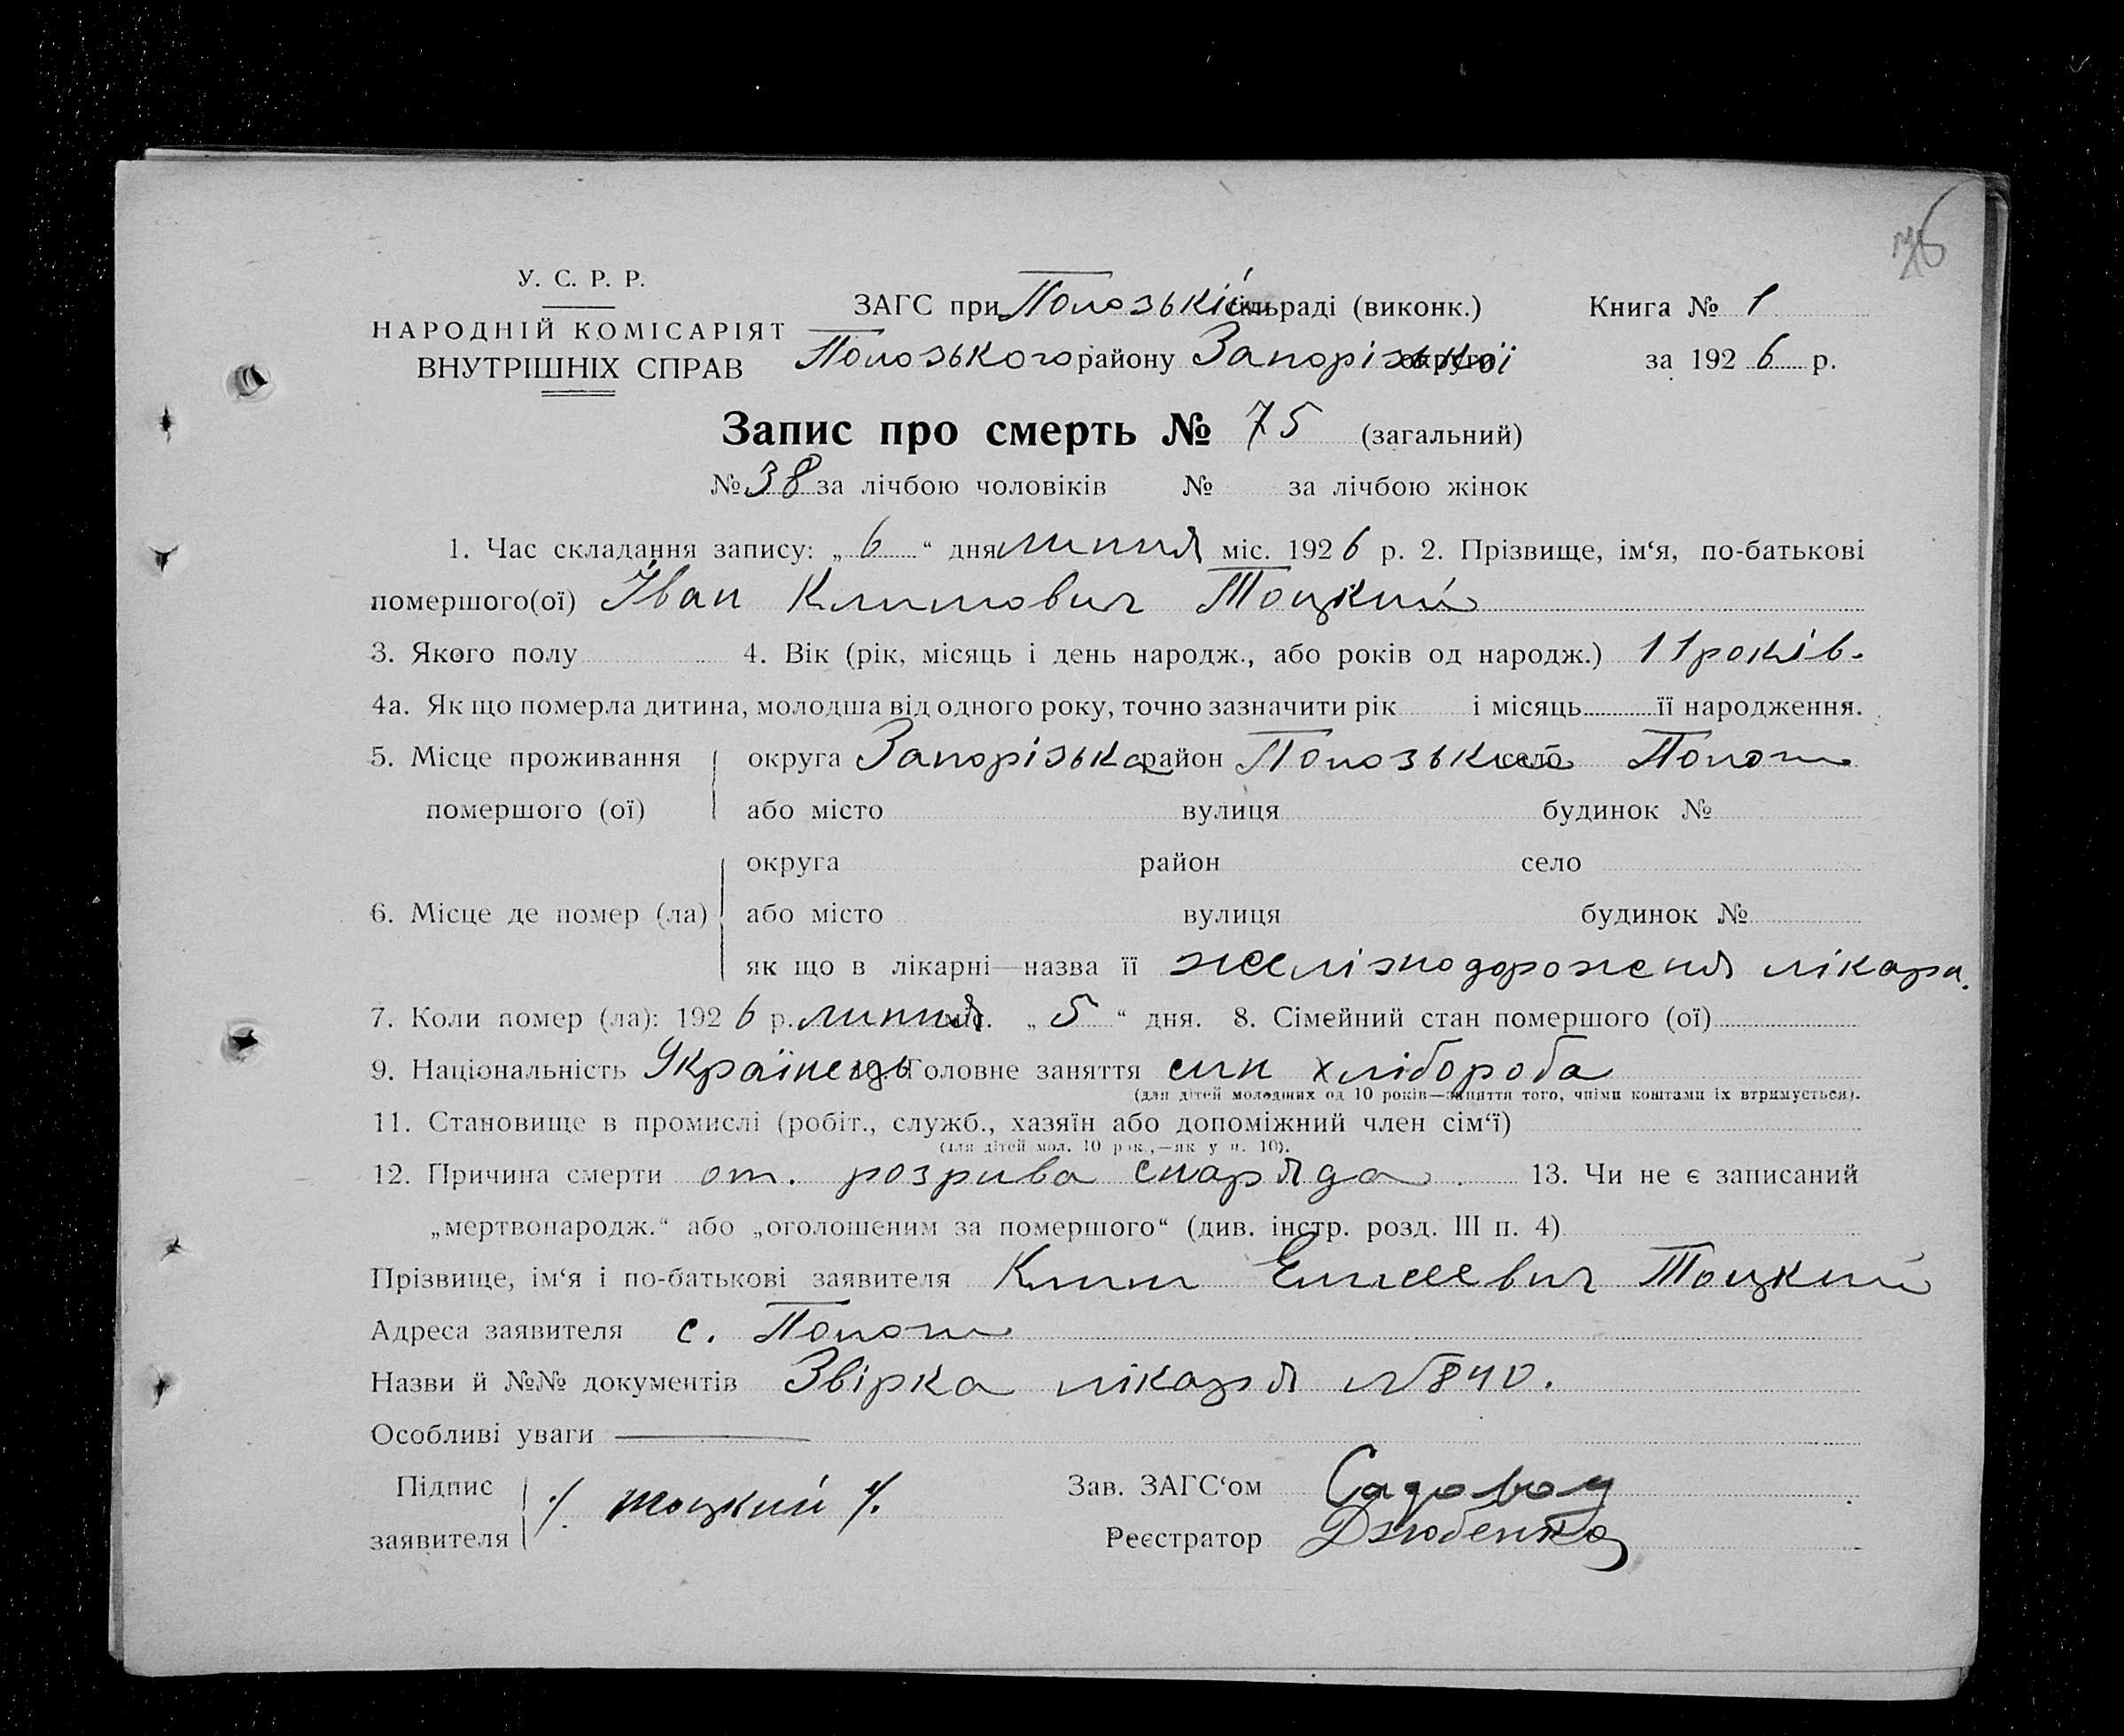 76
У. С. Р. Р.
НАРОДНІЙ КОМІСАРІЯТ
ВНУТРІШНІХ СПРАВ
ЗАГС при Пологській сільраді (виконк.)
Пологського району Запорізької округи
Книга № 1
за 1926 р.
Запис про смерть № 75 (загальний)
№ 38 за лічбою чоловіків № за лічбою жінок
1. Час складання запису: „ 6 “ дня липня міс. 1926 р. 2. Прізвище, ім‘я, по-батькові
помершого(ої) Іван Климович Тоцкий
3. Якого полу 4. Вік (рік, місяць і день народж., або років од народж.) 11 років.
4а. Як що померла дитина, молодша від одного року, точно зазначити рік і місяць її народження.
5. Місце проживання округа Запорізька район село
помершого (ої) або місто вулиця будинок №
округа район село
6. Місце де помер (ла) або місто вулиця будинок №
як що в лікарні—назва її желізнодорожня лікарн.
7. Коли помер (ла): 1926 р. липня міс. „ 5 “ дня. 8. Сімейний стан помершого (ої)
9. Національність Українець 10. Головне заняття син хлібороба
(для дітей молодших од 10 років—заняття того, чиїми коштами їх втримується).
11. Становище в промислі (робіт., служб., хазяїн або допоміжний член сім‘ї)
(для дітей мол. 10 рок.,—як у п. 10).
12. Причина смерти от. розрива снаряда. 13. Чи не є записаний
„мертвонародж.“ або „оголошеним за помершого“ (див. інстр. розд. III п. 4)
Прізвище, ім‘я і по-батькові заявителя Клим Елисеевич Тоцкий
Адреса заявителя с.
Назви й №№ документів Звірка лікаря №840.
Особливі уваги
Підпис
заявителя /. Тоцкий /.
Зав. ЗАГС‘ом
Реєстратор Дзюбенко